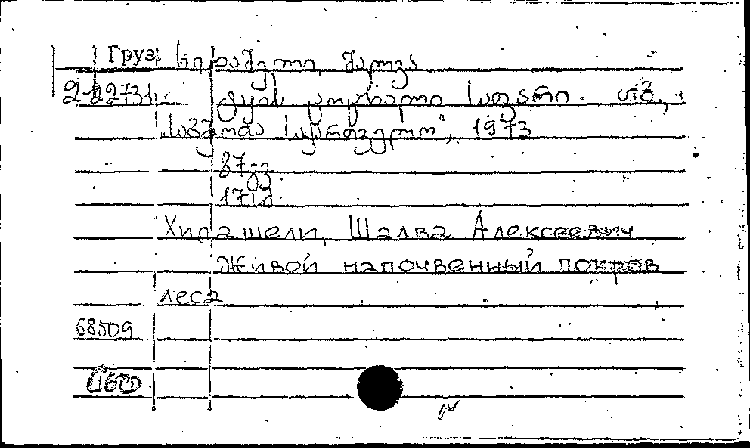 Груз. ხირაშელი, შალვა
ტყის ცოცხალი საფარი. თბ.,
„საბჭოთა საქართველო“, 1973
87 გვ.
Хирашели, Шалва Алексеевич
Живой напочвенный покров
леса
68509